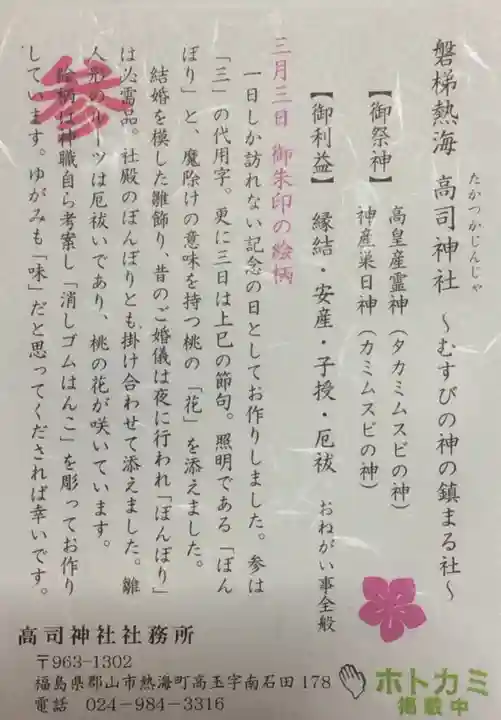 磐梯熱海 高司神社 ～むすびの神の鎮まる社～
たかつかじんじゃ
【御祭神】 高皇産霊神（タカミムスビの神）
神産巣日神（カミムスビの神）
【御利益】 縁結・安産・子授・厄祓 おねがい事全般
三月三日 御朱印の絵柄
一日しか訪れない記念の日としてお作りしました。参は
「三」の代用字。更に三日は上巳の節句。照明である「ぼん
ぼり」と、魔除けの意味を持つ桃の「花」を添えました。
結婚を模した雛飾り，昔のご婚儀は夜に行われ「ぼんぼり」
は必需品。社殿のぼんぼりとも掛け合わせて添えました。雛
人形のルーツは厄祓いであり、桃の花が咲いています。
絵柄は神職自ら考案し「消しゴムはんこ」を彫ってお作り
しています。ゆがみも「味」だと思ってくだされば幸いです。
参
高司神社社務所
〒963-1302
福島県郡山市熱海町高玉字南石田 178
電話 024-984-3316
ホトカミ
掲載中